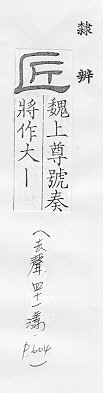 隸辨
匠
魏上尊號奏
將作大丨
(去聲 四十一漾 P.604)